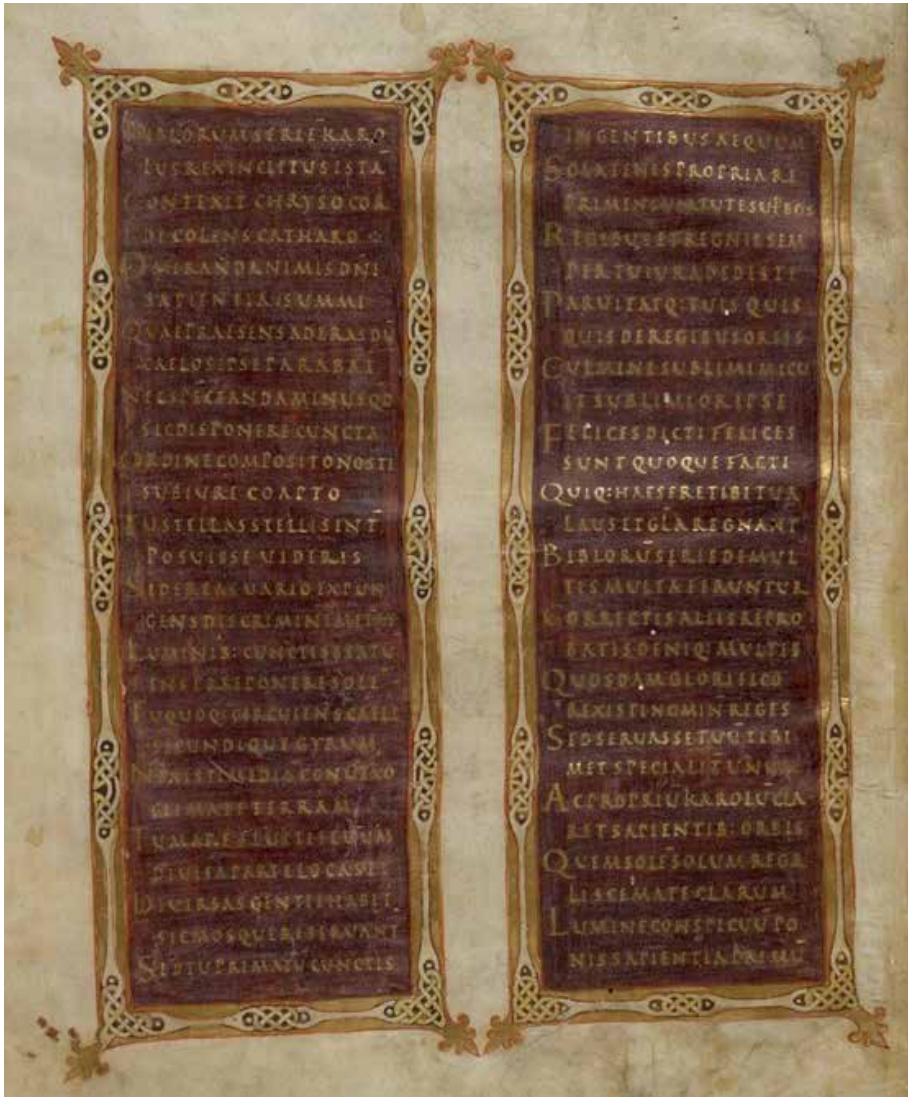 BIBLORUM SERIĒ KARO
LUS REX INCLITUS ISTĀ
CONTEXIT CHRYSO COR
DE COLENS CATHARO
O MIRANDA NIMIS DNI
SAPIENTIA SUMMI
QUAE PRAESENS ADERAS DŪ
CAELOS IPSE PARABAT
NEC SPECTANDA MINUS QD
SIC DISPONERE CUNCTA
ORDINE COMPOSITO NOSTI
SUB IURE COAPTO
STELLAS STELLIS INT
POSUISSE VIDERIS
SIDEREA VARIO EXPUN
GENS DISCRIMINA
LUMINIB: CUNCTIS
PRAEPONERE SOLĒ
TU QUOQ: CIRCUIENS CAELI
SECUNDI QUE GYRUM
MEDIA CONVEXO
CLIMATE TERRAM
TU MARE FLUCTIFLUUM
DIVISA PER LOCA SISTI
DIVERSAS GENTES HABLĒ
SIC MOSQUE RESERVANT
SED TU PRIMATŪ CUNCTIS
IN GENTIBUS AEQUUM
SOLA TENES PROPRIA RE
PRIMENS VIRTUTE SUPBOS
REGIBUS ET REGNIS SEM
PER TU IURA DEDISTI
PARUIT ATQ: TUIS QUIS
QUIS DE REGIBUS ORBIS
CULMINE SUBLIMI MICU
IT SUBLIMIOR IPSE
FELICES DICTI FELICES
SUNT QUOQUE FACTI
QUIQ: HAESERE TIBI TUA
LAUS ET GLA REGNANT
BIBLORŪ SERIE DE MUL
TIS MULTA FERUNTUR
CORRECTIS ALIIS REPRO
BATIS DENIQ: MULTIS
QUOSDAM GLORIFICO
REXISTI NOMIN REGES
SED SERVASSE TUŪ TIBI
MET SPECIALIT UNUM
AC PROPRIŪ KAROLŪ CLA
RET SAPIENTIB: ORBIS
QUEM SOLE SOLUM REGA
LI SCEMATE CLARUM
LUMINE CONSPICUŪ PO
NIS SAPIENTIA PRIMŪ